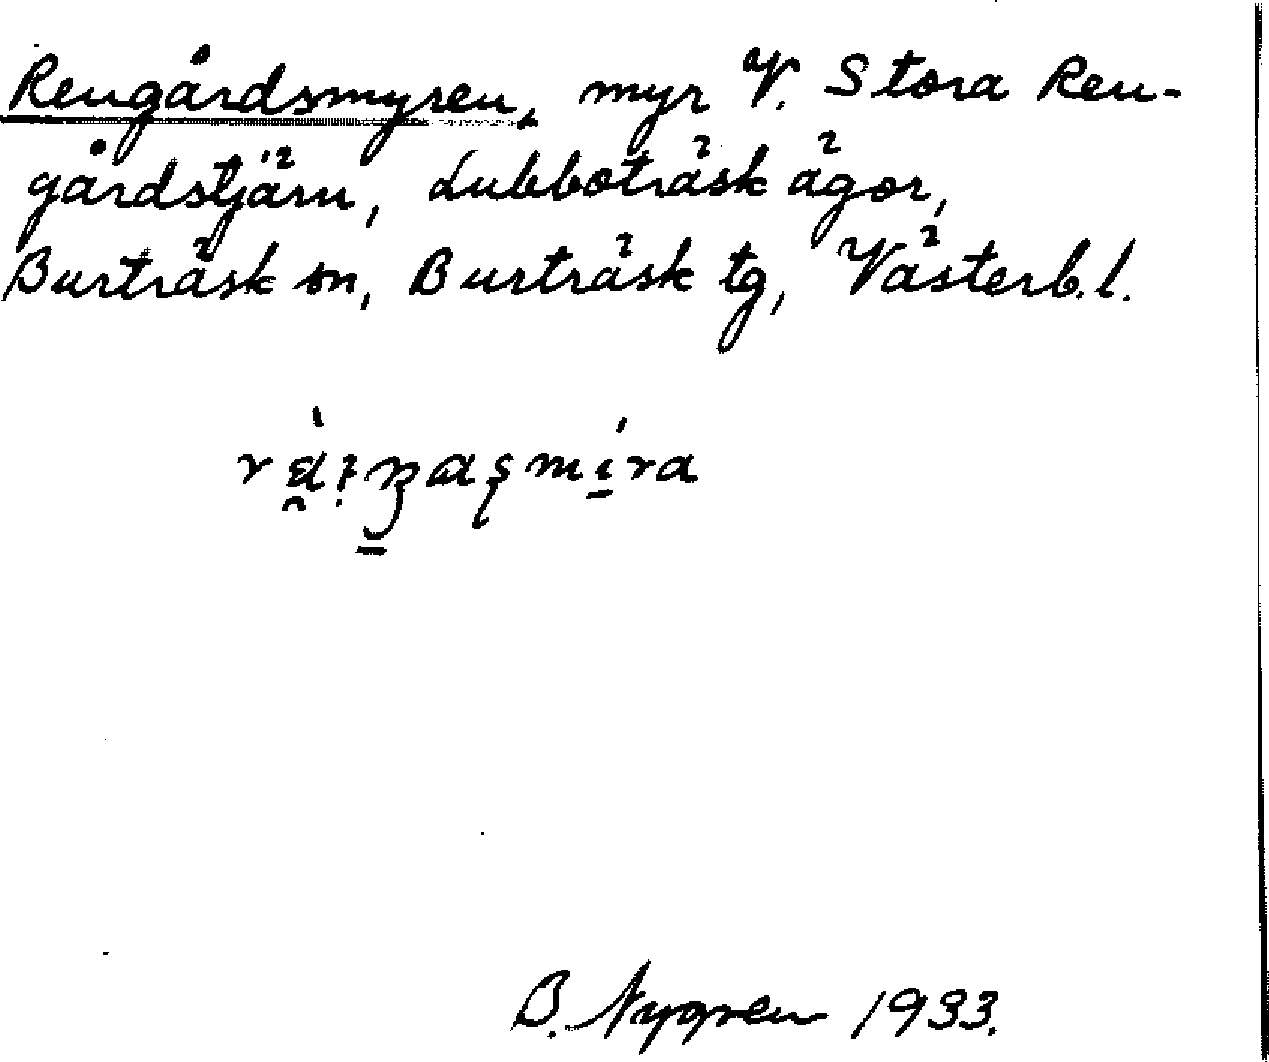 Rengårdsmyren, myr V. Stora Ren-
gårdstjärn, Lubboträsk ägor,
Burträsk sn, Burträsk tg, Västerb.l.
B. Nygren 1933.